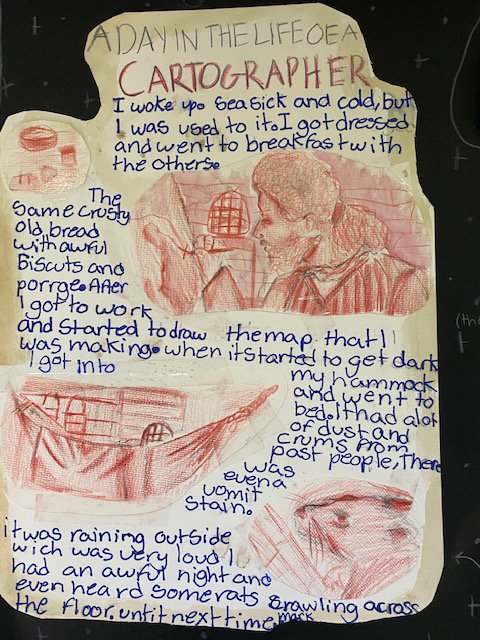 A DAY IN THE LIFE OF A
CARTOGRAPHER
I woke up. seasick and cold, but
I was used to it. I got dressed
and went to breakfast with
the others.
The
same crusty
old bread
with awful
Biscuts and
porrge. After
I got to work
and started to draw the map that I
was making. when it started to get dark
I got into
my hammock
and went to
bed. It had alot
of dust and
crums from
past people, There
was
even a
vomit
stain.
it was raining outside
wich was very loud I
had an awful night and
even heard some rats crawling across
the floor. until next time, Mark
(the